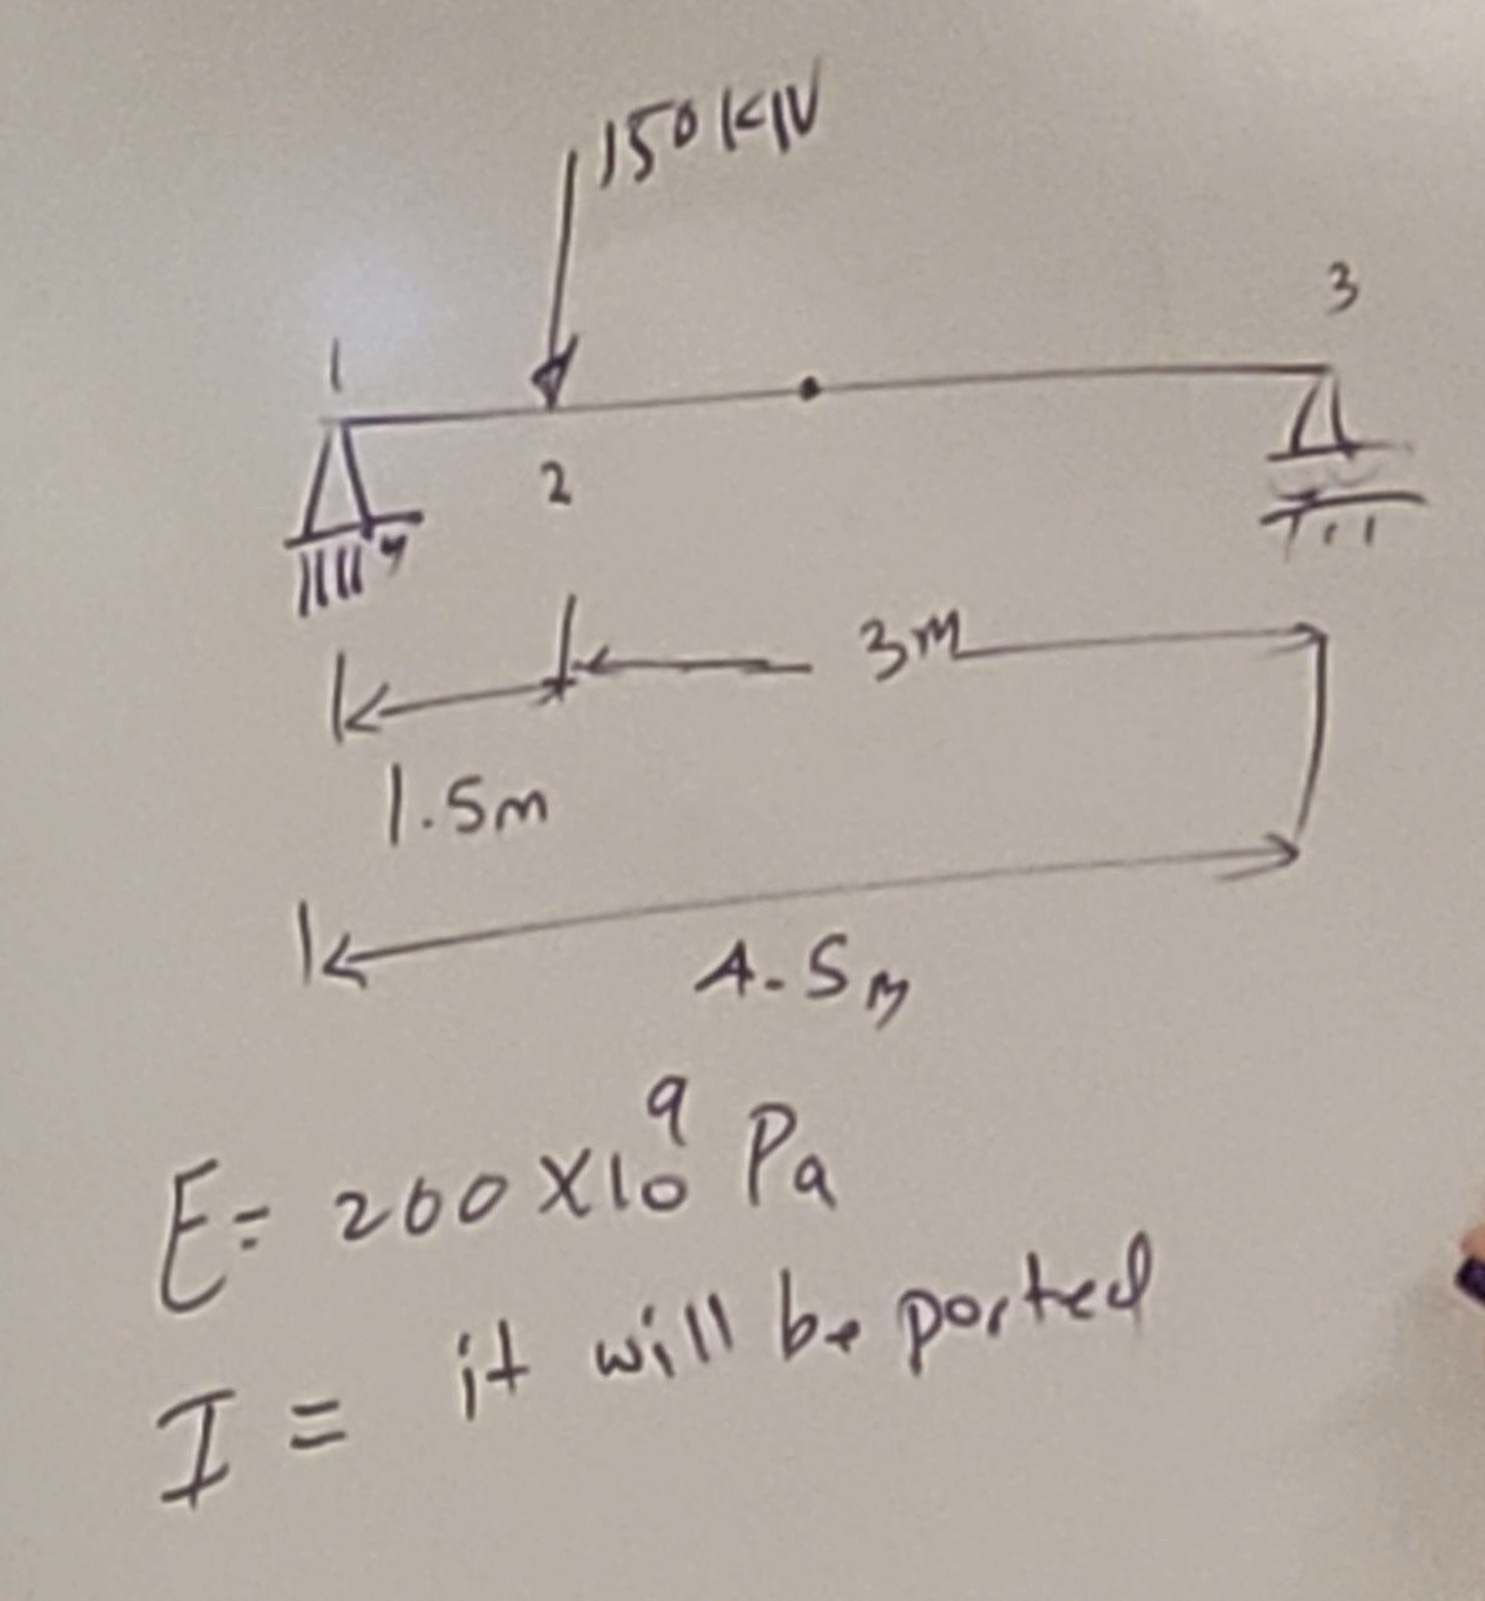 150KN
1
3
2
3m
1.5m
4.5m
E= 200X10⁹ Pa
I = it will be ported